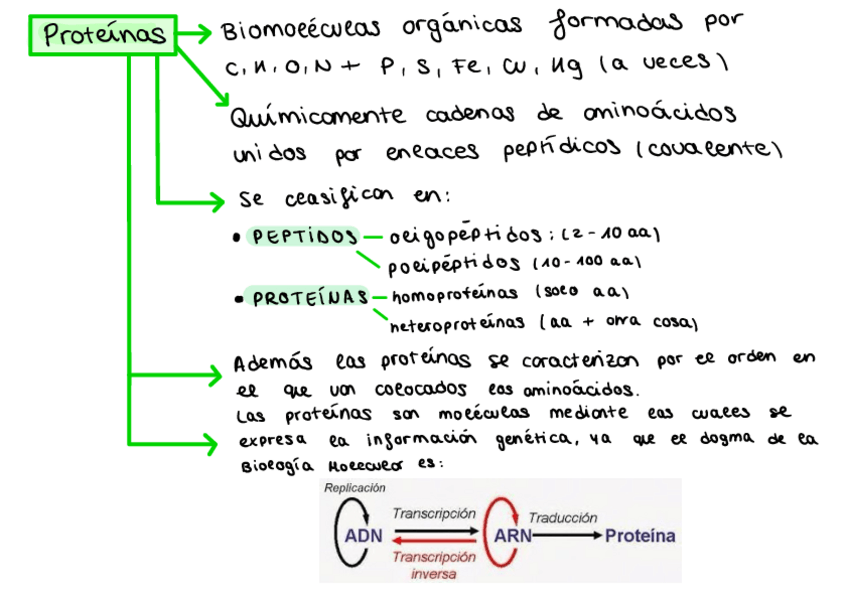 Proteínas
Biomoléculas orgánicas formadas por
C, H, O, N + P, S, Fe, Cu, Hg (a veces)
Químicamente cadenas de aminoácidos
unidos por enlaces peptídicos (covalente)
Se clasifican en:
• PEPTIDOS — oligopéptidos: (2-10 aa)
polipéptidos (10-100 aa)
• PROTEÍNAS — homoproteínas (solo aa)
heteroproteínas (aa + otra cosa)
Además las proteínas se caracterizan por el orden en
el que van colocados los aminoácidos.
Las proteínas son moléculas mediante las cuales se
expresa la información genética, ya que el dogma de la
Biología Molecular es:
Replicación
Transcripción
Traducción
ADN
ARN
Proteína
Transcripción
inversa